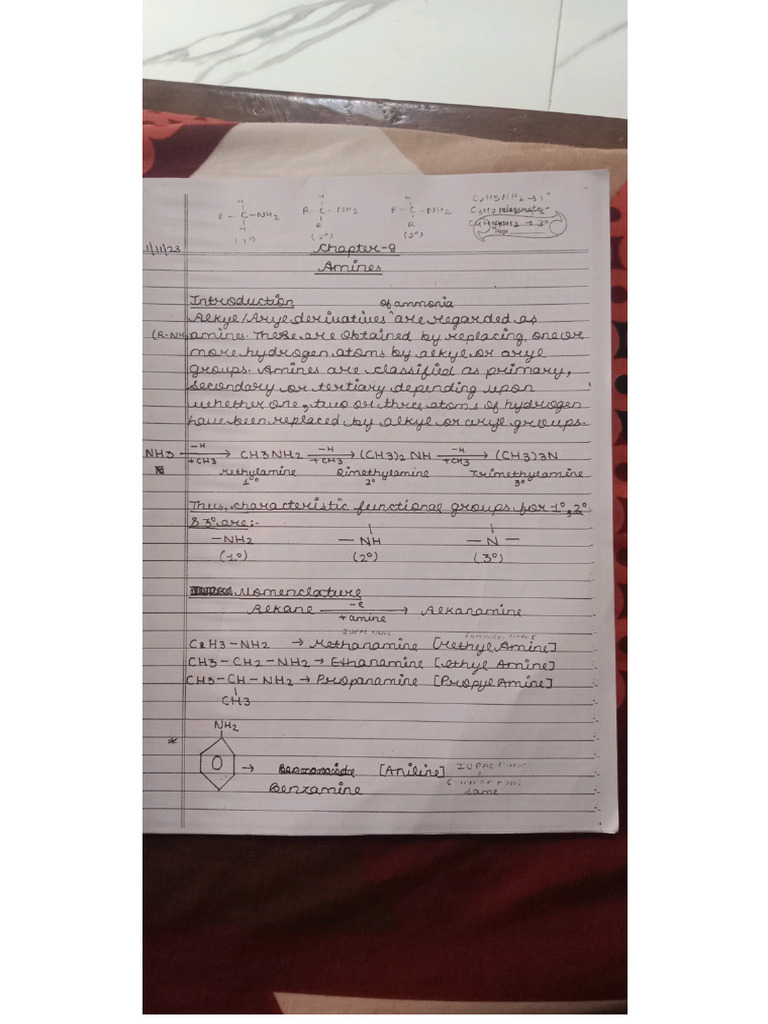 H H H C2H5NH2→1°
R-C-NH2 R-C-NH2 R-C-NH2
H R R
(1°) (2°) (3°)
1/11/23 Chapter-9
Amines
Introduction of ammonia
Alkyl/Aryl derivatives ^ are regarded as
(R-NH2 amines. These are obtained by replacing one or
more hydrogen atoms by alkyl or aryl
groups. Amines are classified as primary,
secondary or tertiary depending upon
whether one, two or three atoms of hydrogen
have been replaced by alkyl or aryl groups.
NH3 -H/+CH3→ CH3NH2 -H/+CH3→ (CH3)2 NH -H/+CH3→ (CH3)3N
Methylamine Dimethylamine Trimethylamine
1° 2° 3°
Thus, characteristic functional groups for 1°, 2°
& 3° are:-
-NH2 -NH -N-
(1°) (2°) (3°)
Nomenclature
Alkane -e/+amine→ Alkanamine
IUPAC Name Common Name
CH3-NH2 → Methanamine [Methyl Amine]
CH3-CH2-NH2 → Ethanamine [ethyl Amine]
CH3-CH-NH2 → Propanamine [Propyl Amine]
CH3
NH2
* → [Aniline] IUPAC Name
Benzamine Common name same